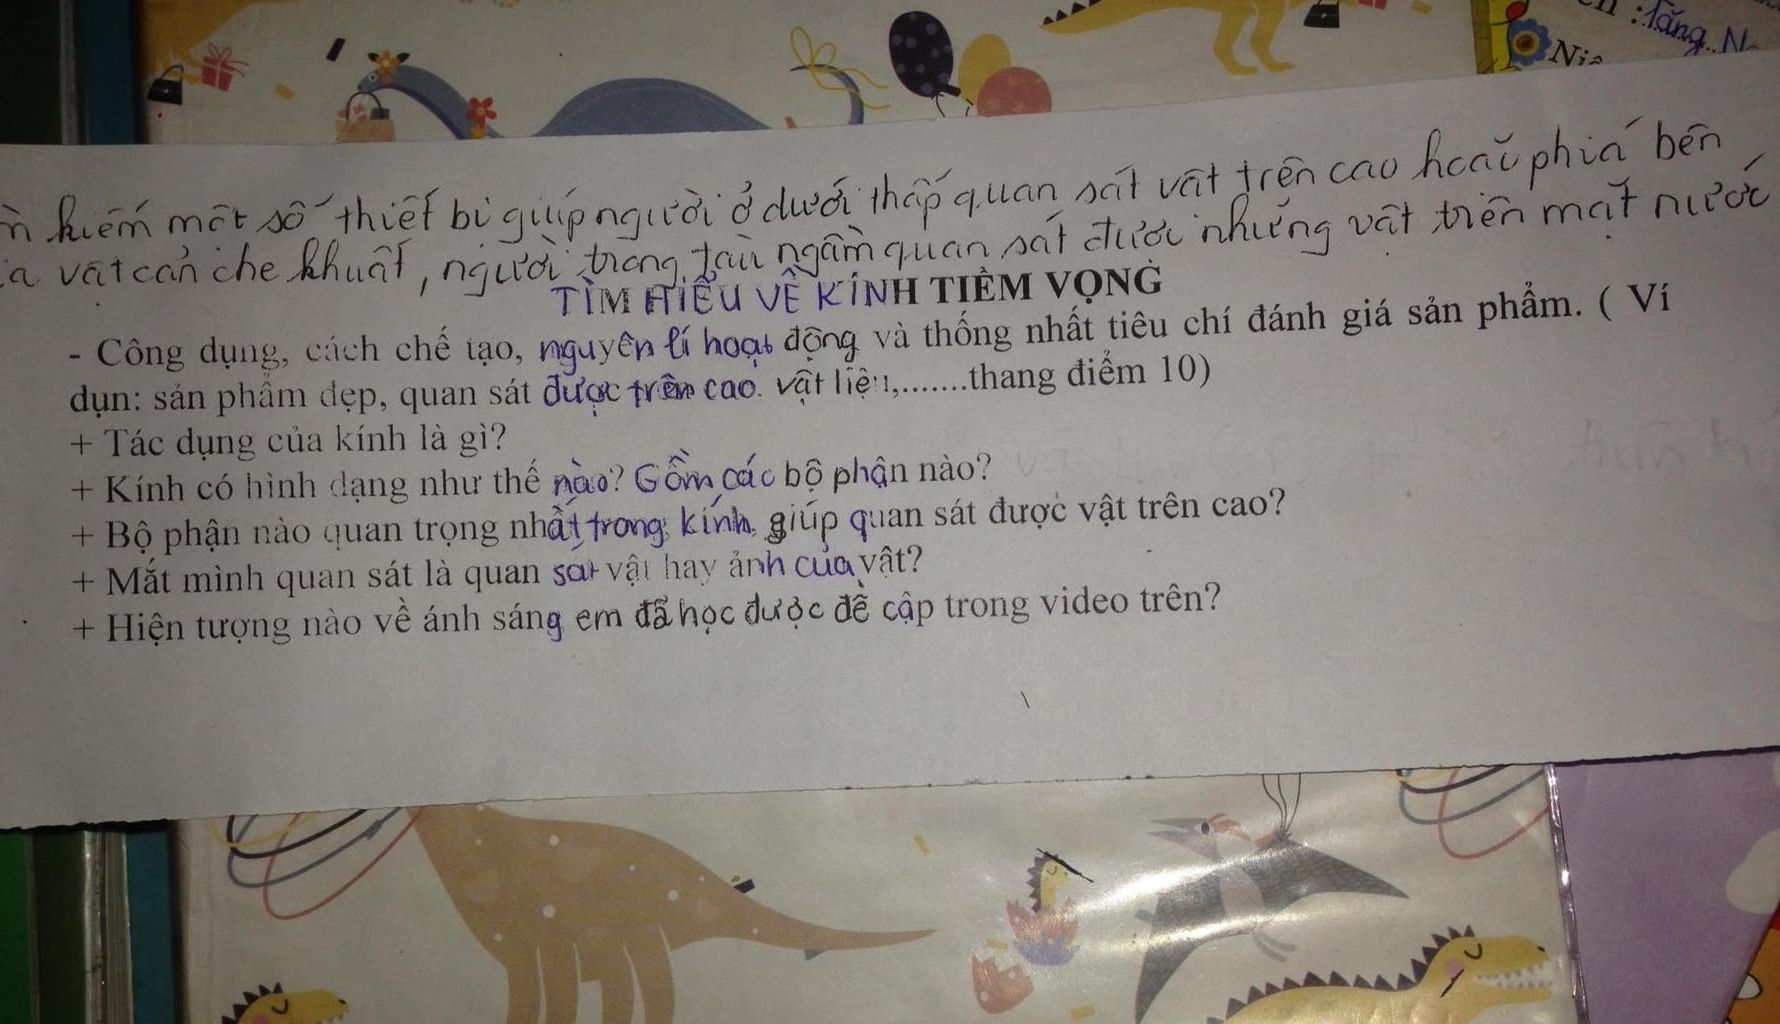 :Tăng. N
Niê
kiếm một số thiết bị giúp người ở dưới thấp quan sát vật trên cao hoặc phía bên
a vật cản che khuất, người trong tàu ngầm quan sát được những vật trên mặt nước
TÌM HIỂU VỀ KÍNH TIỀM VỌNG
- Công dụng, cách chế tạo, nguyên lí hoạt động và thống nhất tiêu chí đánh giá sản phẩm. ( Ví
dụn: sản phẩm đẹp, quan sát được trên cao. vật liệu,.......thang điểm 10)
+ Tác dụng của kính là gì?
+ Kính có hình dạng như thế nào? Gồm các bộ phận nào?
+ Bộ phận nào quan trọng nhất trong kính, giúp quan sát được vật trên cao?
+ Mắt mình quan sát là quan sát vật hay ảnh của vật?
+ Hiện tượng nào về ánh sáng em đã học được đề cập trong video trên?